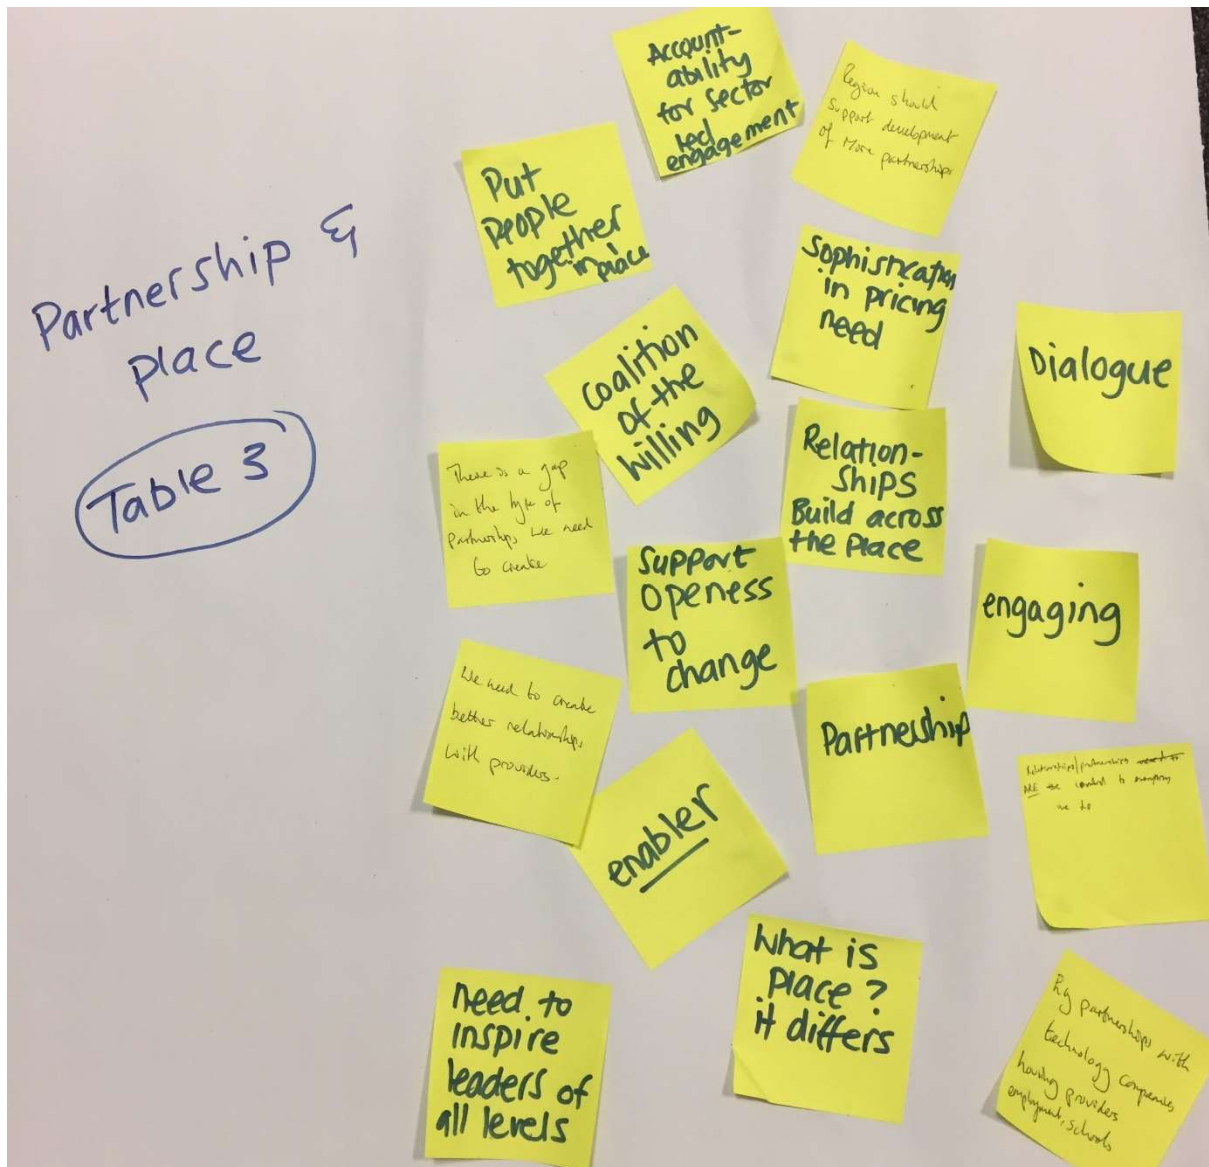 Partnership &
place
Table 3
Account-
ability
for sector
led
engagement
Region should
support development
of more partnerships
Put
people
together
in place
Sophistication
in pricing
need
Dialogue
Coalition
of the
willing
Relation-
ships
Build across
the place
There is a gap
in the type of
partnerships we need
to create
Support
openess
to
change
engaging
We need to create
better relationships
with providers.
Partnership
Relationships/partnerships need to
ARE the control to everything
we do
enabler
What is
place?
it differs
need to
inspire
leaders of
all levels
partnerships with
technology companies
housing providers
employment, schools